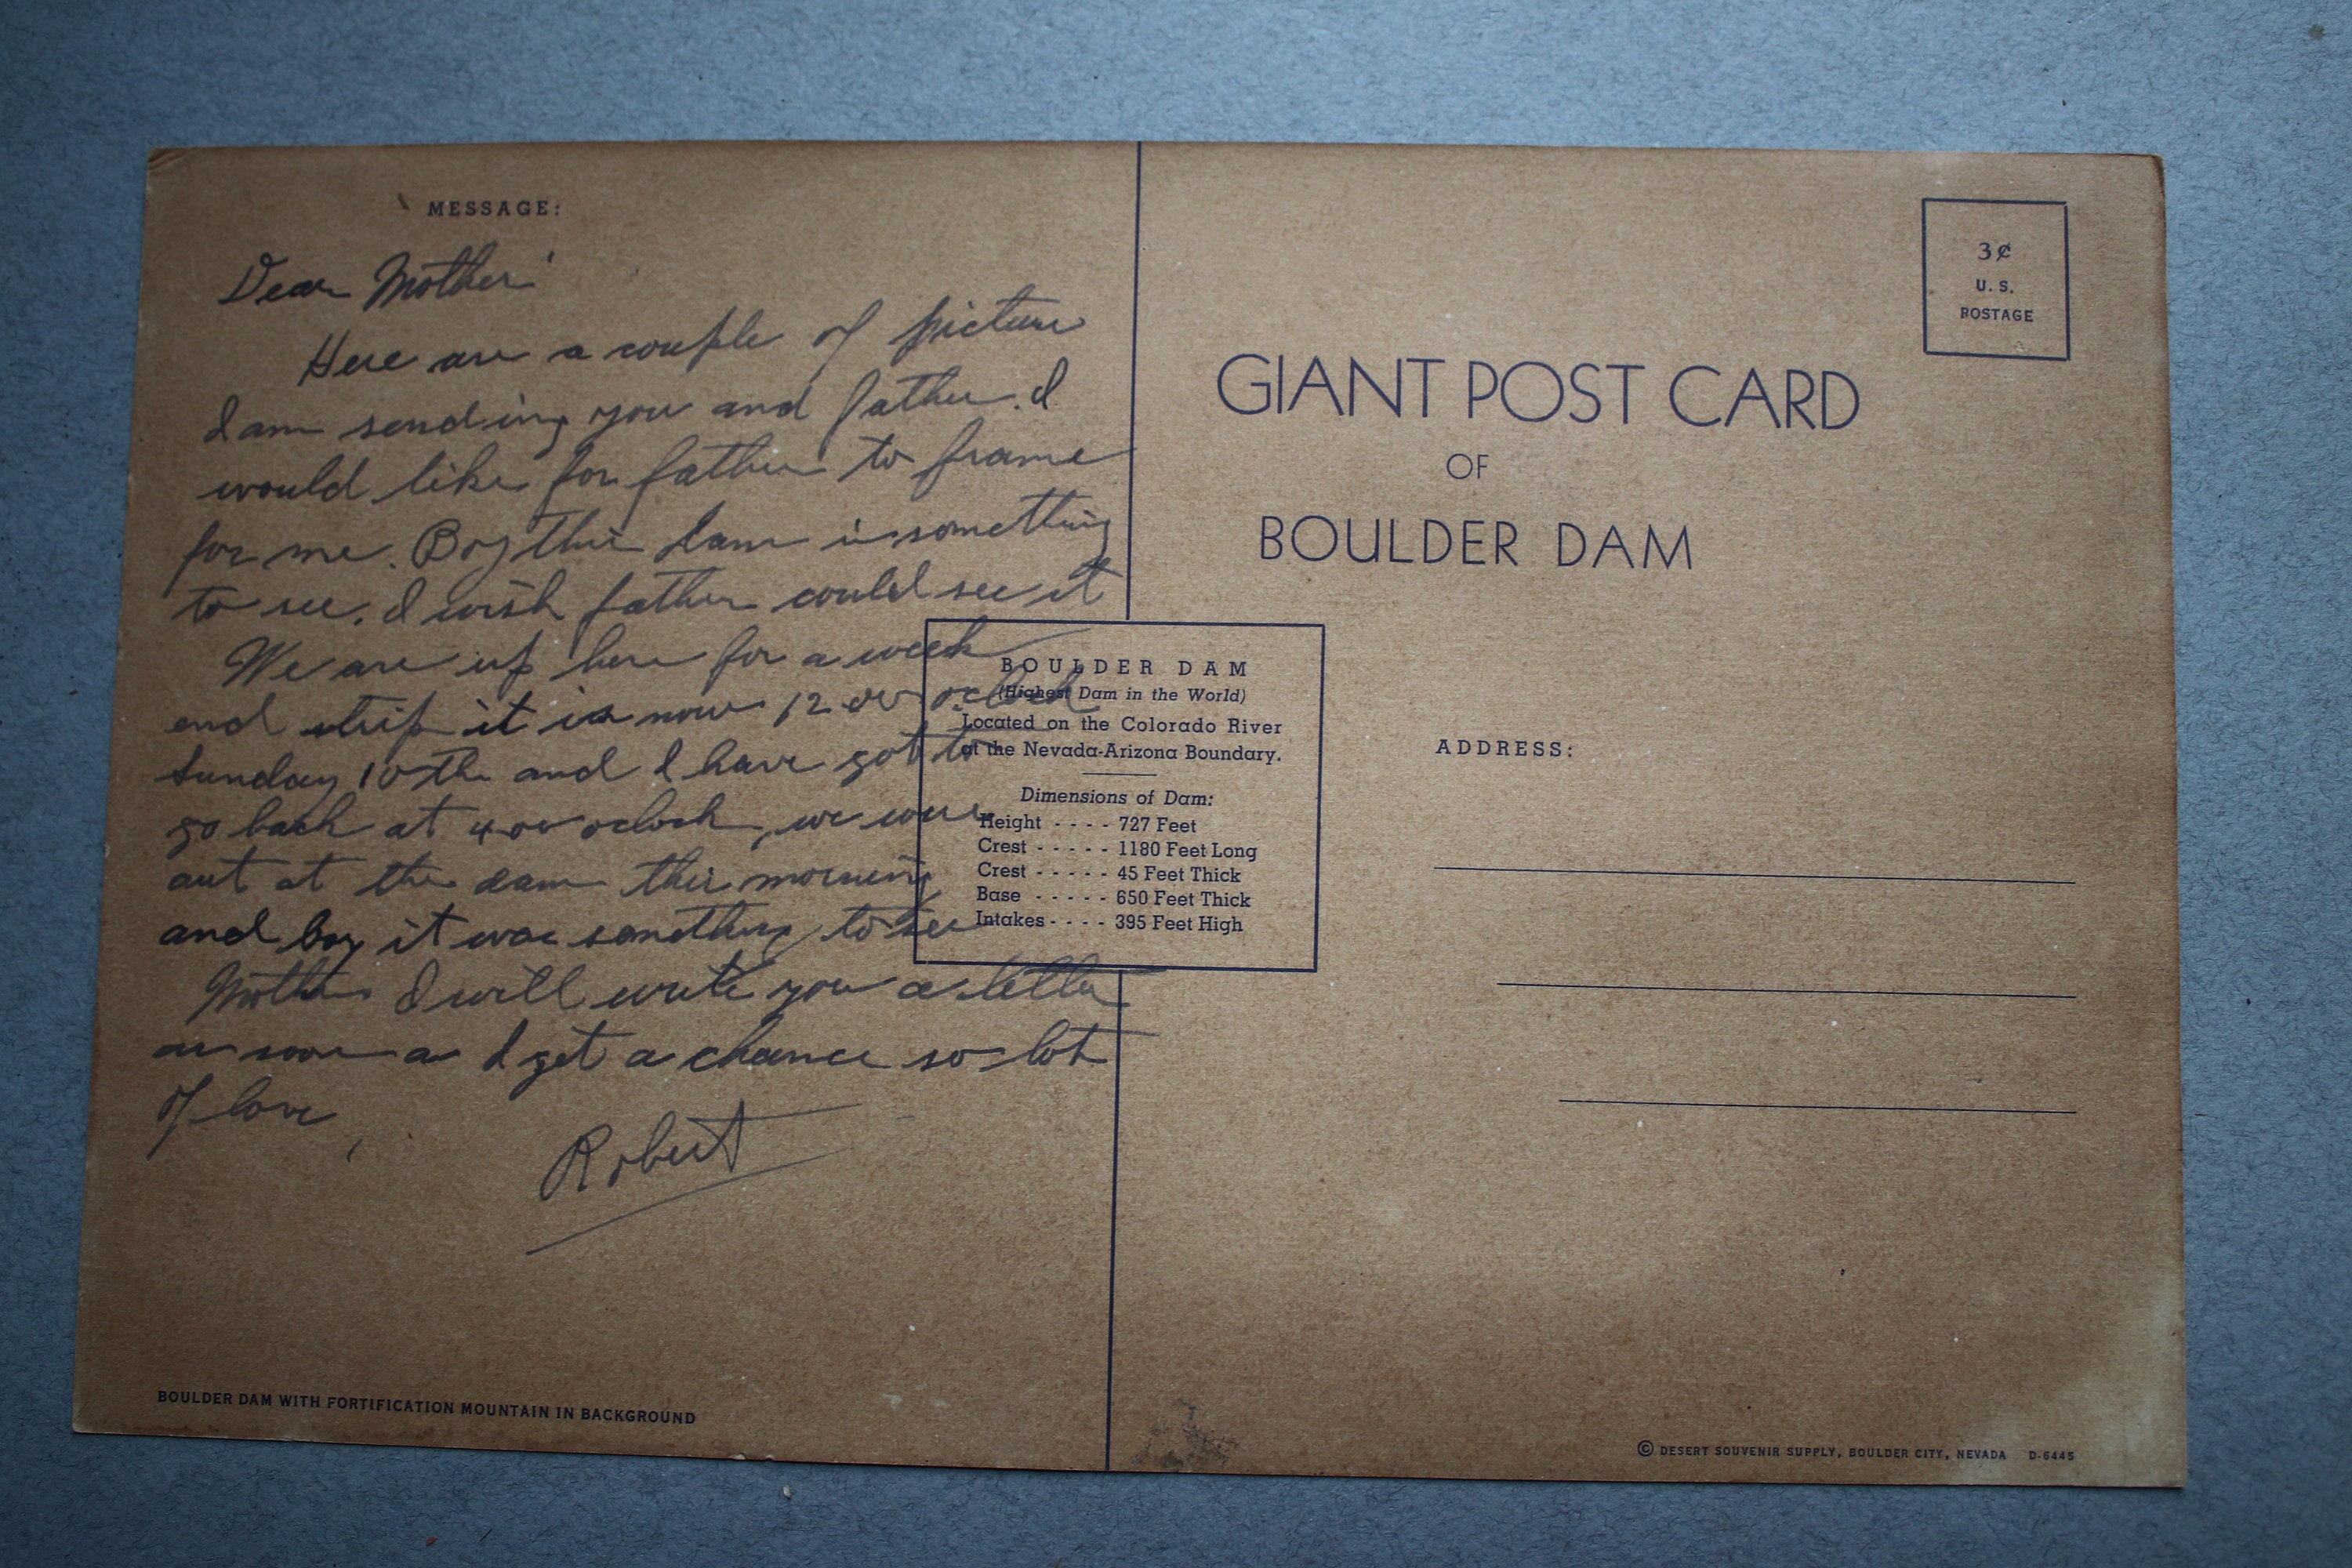 MESSAGE:
Dear Mother'
Here are a couple of picture
I am sending you and father. I
would like for father to frame
for me. Boy this dam is something
to see. I wish father could see it
We are up here for a week
end strip it is now 12 00 oclock
Sunday 10th and I have got to
go back at 4 00 oclock, we were
out at the dam this morning
and boy it was something to see
Mother I will write you a letter
as soon as I get a chance so lot
of love,
Robert
BOULDER DAM WITH FORTIFICATION MOUNTAIN IN BACKGROUND
BOULDER DAM
(Highest Dam in the World)
Located on the Colorado River
at the Nevada-Arizona Boundary.
Dimensions of Dam:
Height - - - - 727 Feet
Crest - - - - - 1180 Feet Long
Crest - - - - - 45 Feet Thick
Base - - - - - 650 Feet Thick
Intakes - - - - 395 Feet High
3¢
U. S.
POSTAGE
GIANT POST CARD
OF
BOULDER DAM
ADDRESS:
© DESERT SOUVENIR SUPPLY, BOULDER CITY, NEVADA D-6445